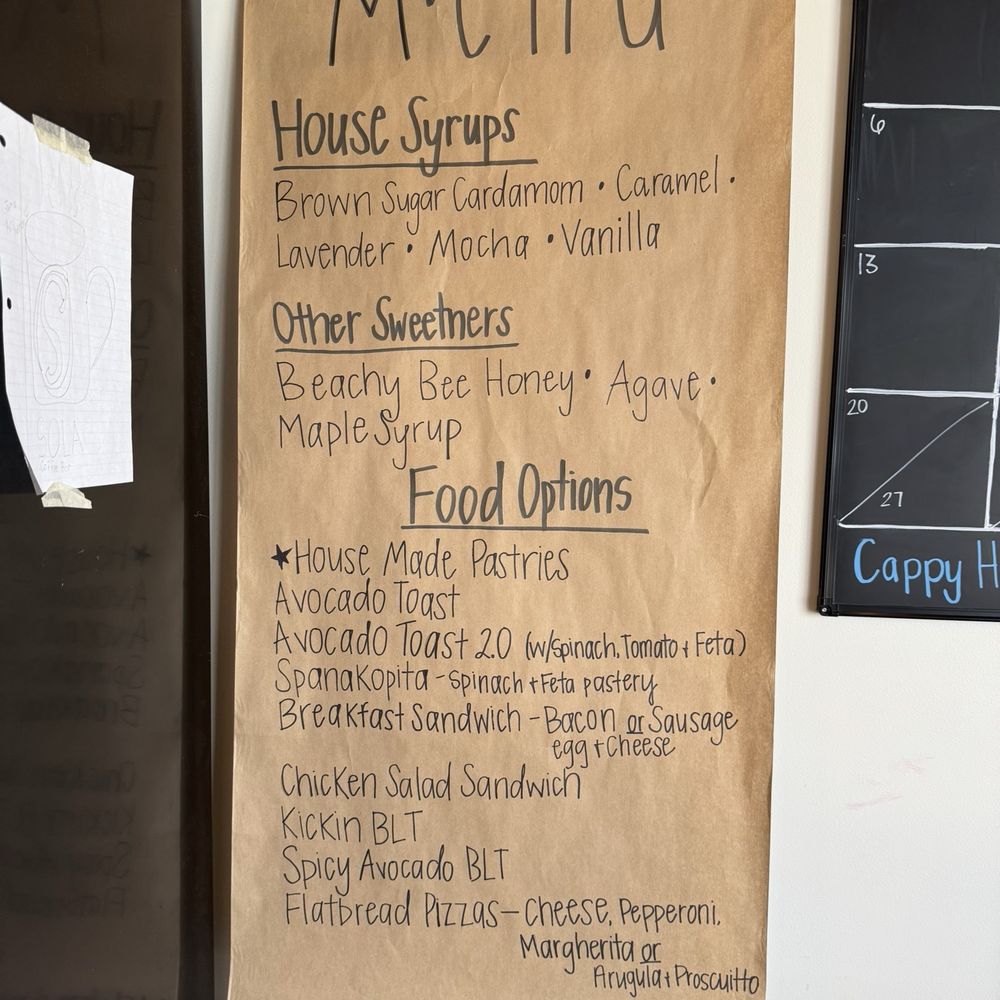 Menu
House Syrups
Brown Sugar Cardamom • Caramel •
Lavender • Mocha • Vanilla
Other Sweetners
Beachy Bee Honey • Agave •
Maple Syrup
Food Options
★House Made Pastries
Avocado Toast
Avocado Toast 2.0 (w/Spinach, Tomato + Feta)
Spanakopita - Spinach + Feta pastery
Breakfast Sandwich - Bacon or Sausage
egg + Cheese
Chicken Salad Sandwich
Kickin BLT
Spicy Avocado BLT
Flatbread Pizzas - Cheese, Pepperoni,
Margherita or
Arugula + Proscuitto
6
13
20
27
Cappy H
SOLA